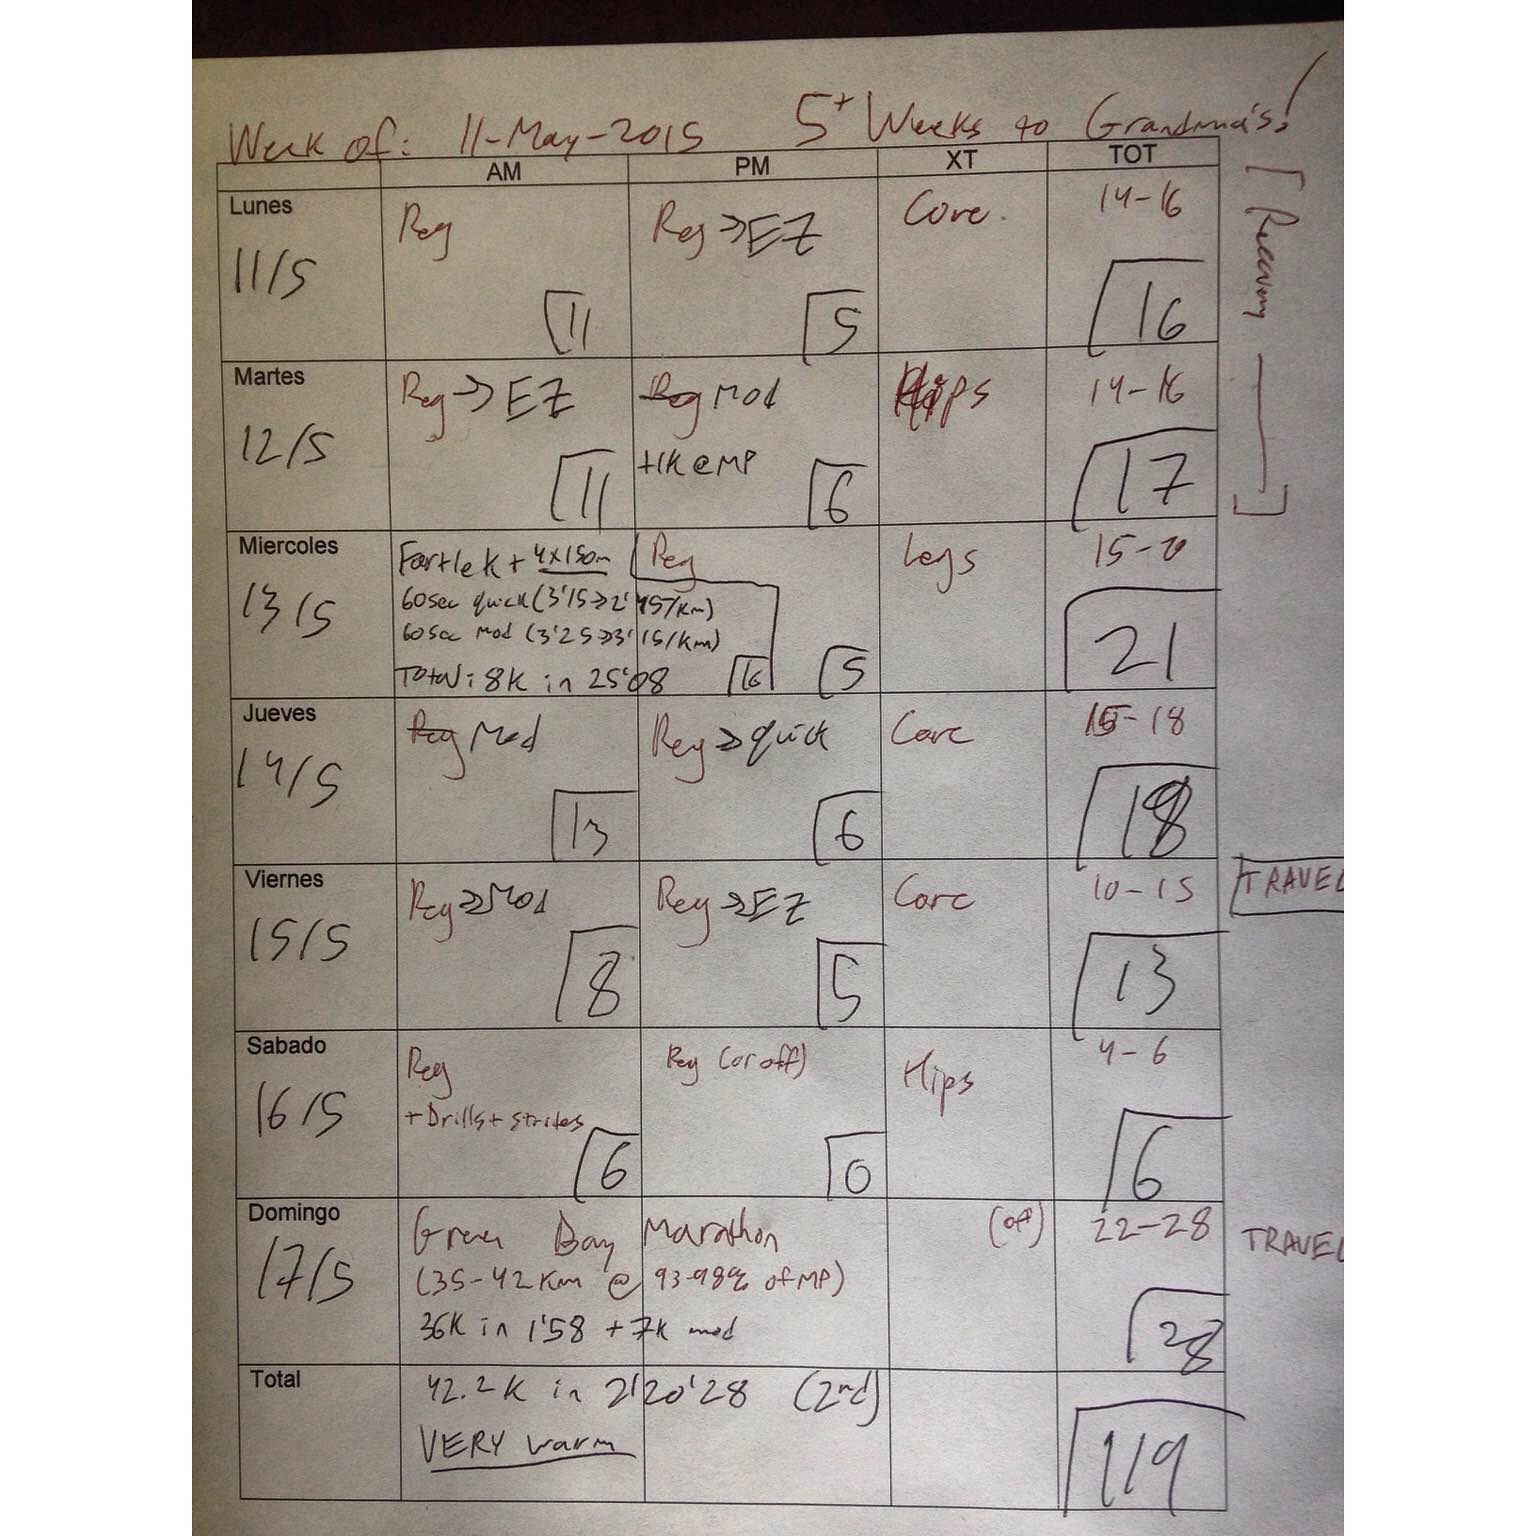 Week of: 11-May-2015 5+ Weeks to Grandma's!
AM PM XT TOT
Lunes Reg Reg → EZ Core. 14-16
11/5 11 5 16
[Recovery]
Martes Reg → EZ Reg Mod Hips 14-16
12/5 +1K @ MP
11 6 17
Miercoles Fartlek + 4x150m Reg Legs 15-20
13/5 60sec quick (3'15→2'45/km)
60sec Mod (3'25→3'15/km)
Total: 8K in 25'08 16 5 21
Jueves Reg Mod Reg → quick Core 15-18
14/5 13 6 18
Viernes Reg → Mod Reg → EZ Core 10-15 TRAVEL
15/5 8 5 13
Sabado Reg Reg (or off) Hips 4-6
16/5 + Drills + strides
6 0 6
Domingo Green Bay Marathon (off) 22-28 TRAVEL
17/5 (35-42km @ 93-98% of MP)
36K in 1'58 + 7K mod 28
Total 42.2K in 2'20'28 (2nd)
VERY warm 119